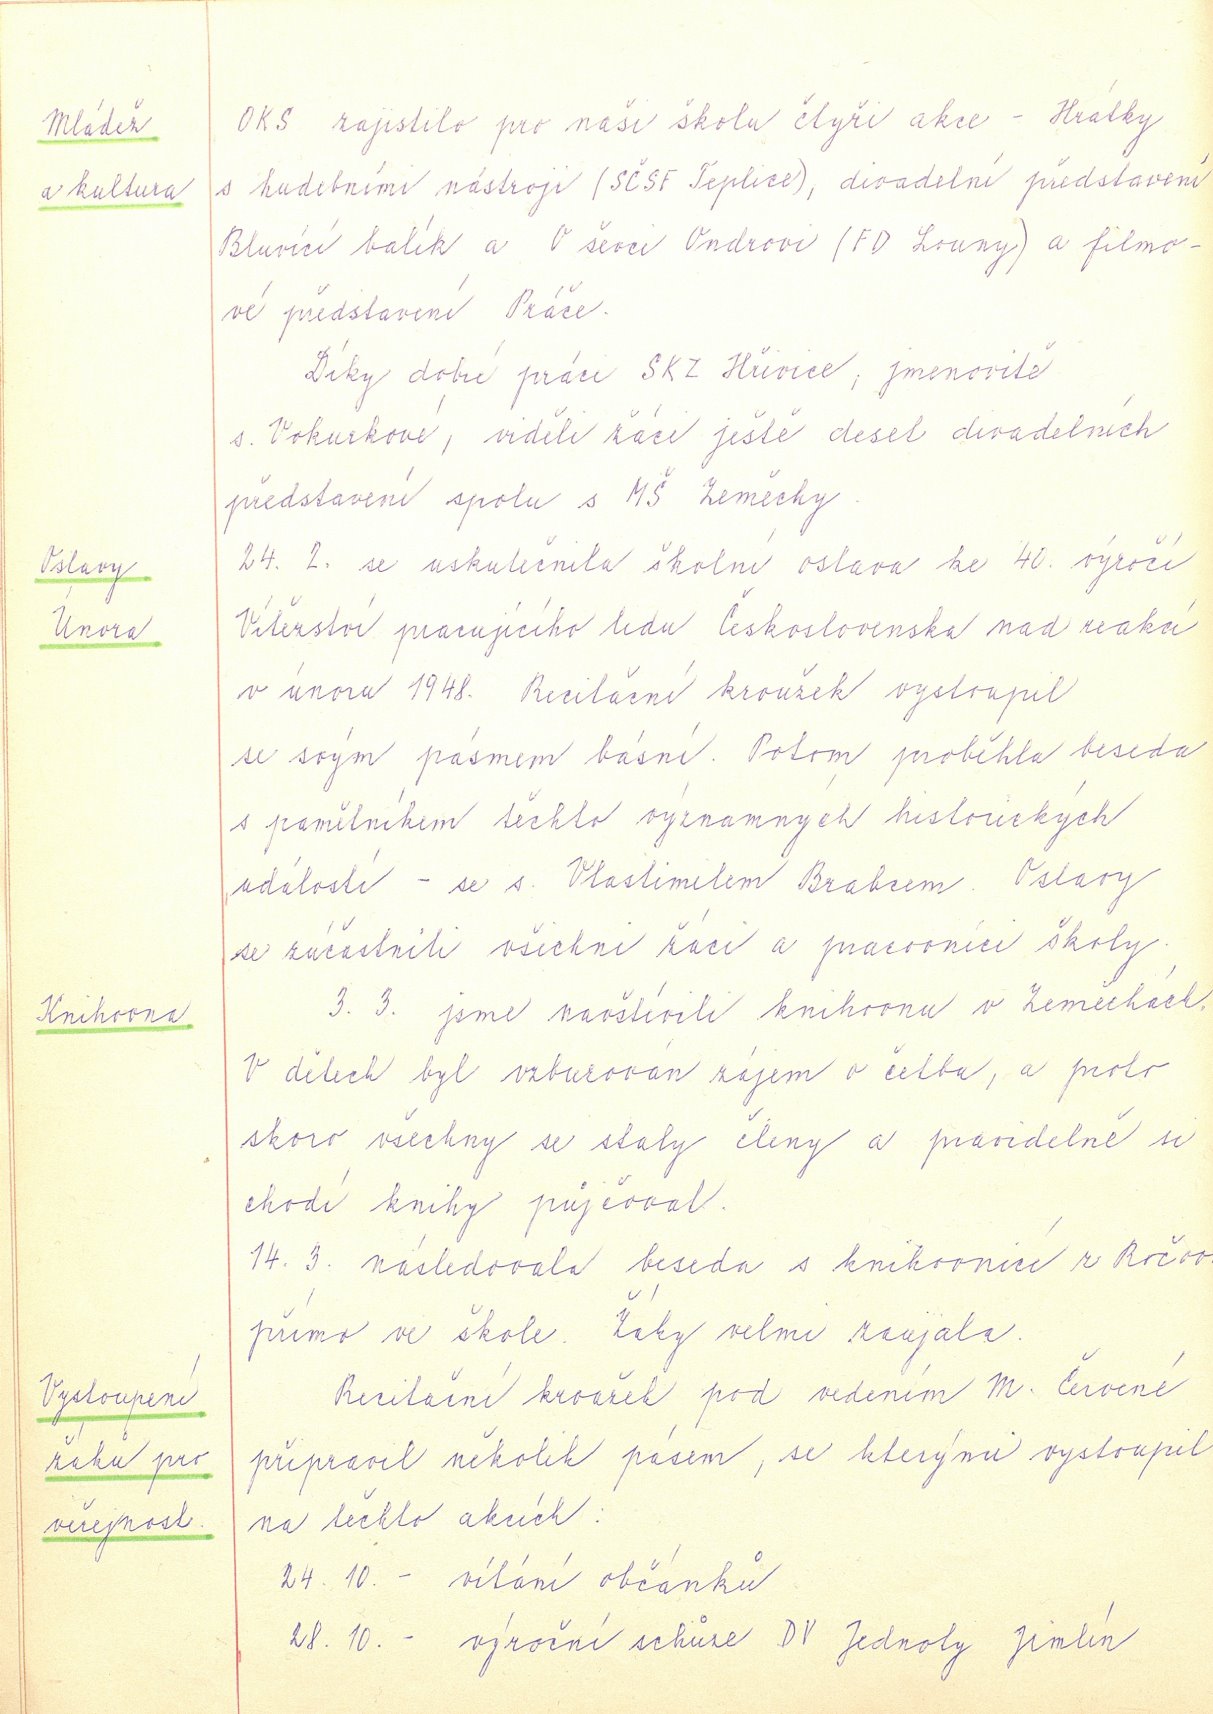 Mládež
OKS zajistilo pro naši školu čtyři akce - Hrátky
a kultura
s hudebními nástroji (SČSF Teplice), divadelní představení
Bluvící balík a O ševci Ondrovi (FD Louny) a filmo-
vé představení Práče.
Díky dobré práci SKZ Hřivice, jmenovitě
s. Vokurkové, viděli žáci ještě deset divadelních
představení spolu s MŠ Zeměchy.
Oslavy
24. 2. se uskutečnila školní oslava ke 40. výročí
Února
Vítězství pracujícího lidu Československa nad reakcí
v únoru 1948. Recitační kroužek vystoupil
se svým pásmem básní. Potom proběhla beseda
s pamětníkem těchto významných historických
událostí - se s. Vlastimilem Brabcem. Oslavy
se zúčastnili všichni žáci a pracovníci školy.
Knihovna
3. 3. jsme navštívili knihovnu v Zeměchách.
V dětech byl vzburován zájem o četbu, a proto
skoro všechny se staly členy a pravidelně si
chodí knihy půjčovat.
14. 3. následovala beseda s knihovnicí z Ročov
přímo ve škole. Žáky velmi zaujala.
Vystoupení
Recitační kroužek pod vedením M. Červené
žáků pro
připravil několik pásem, se kterými vystoupil
veřejnost.
na těchto akcích:
24. 10. - vítání občánků
28. 10. - výroční schůze DV Jednoty Jimlín